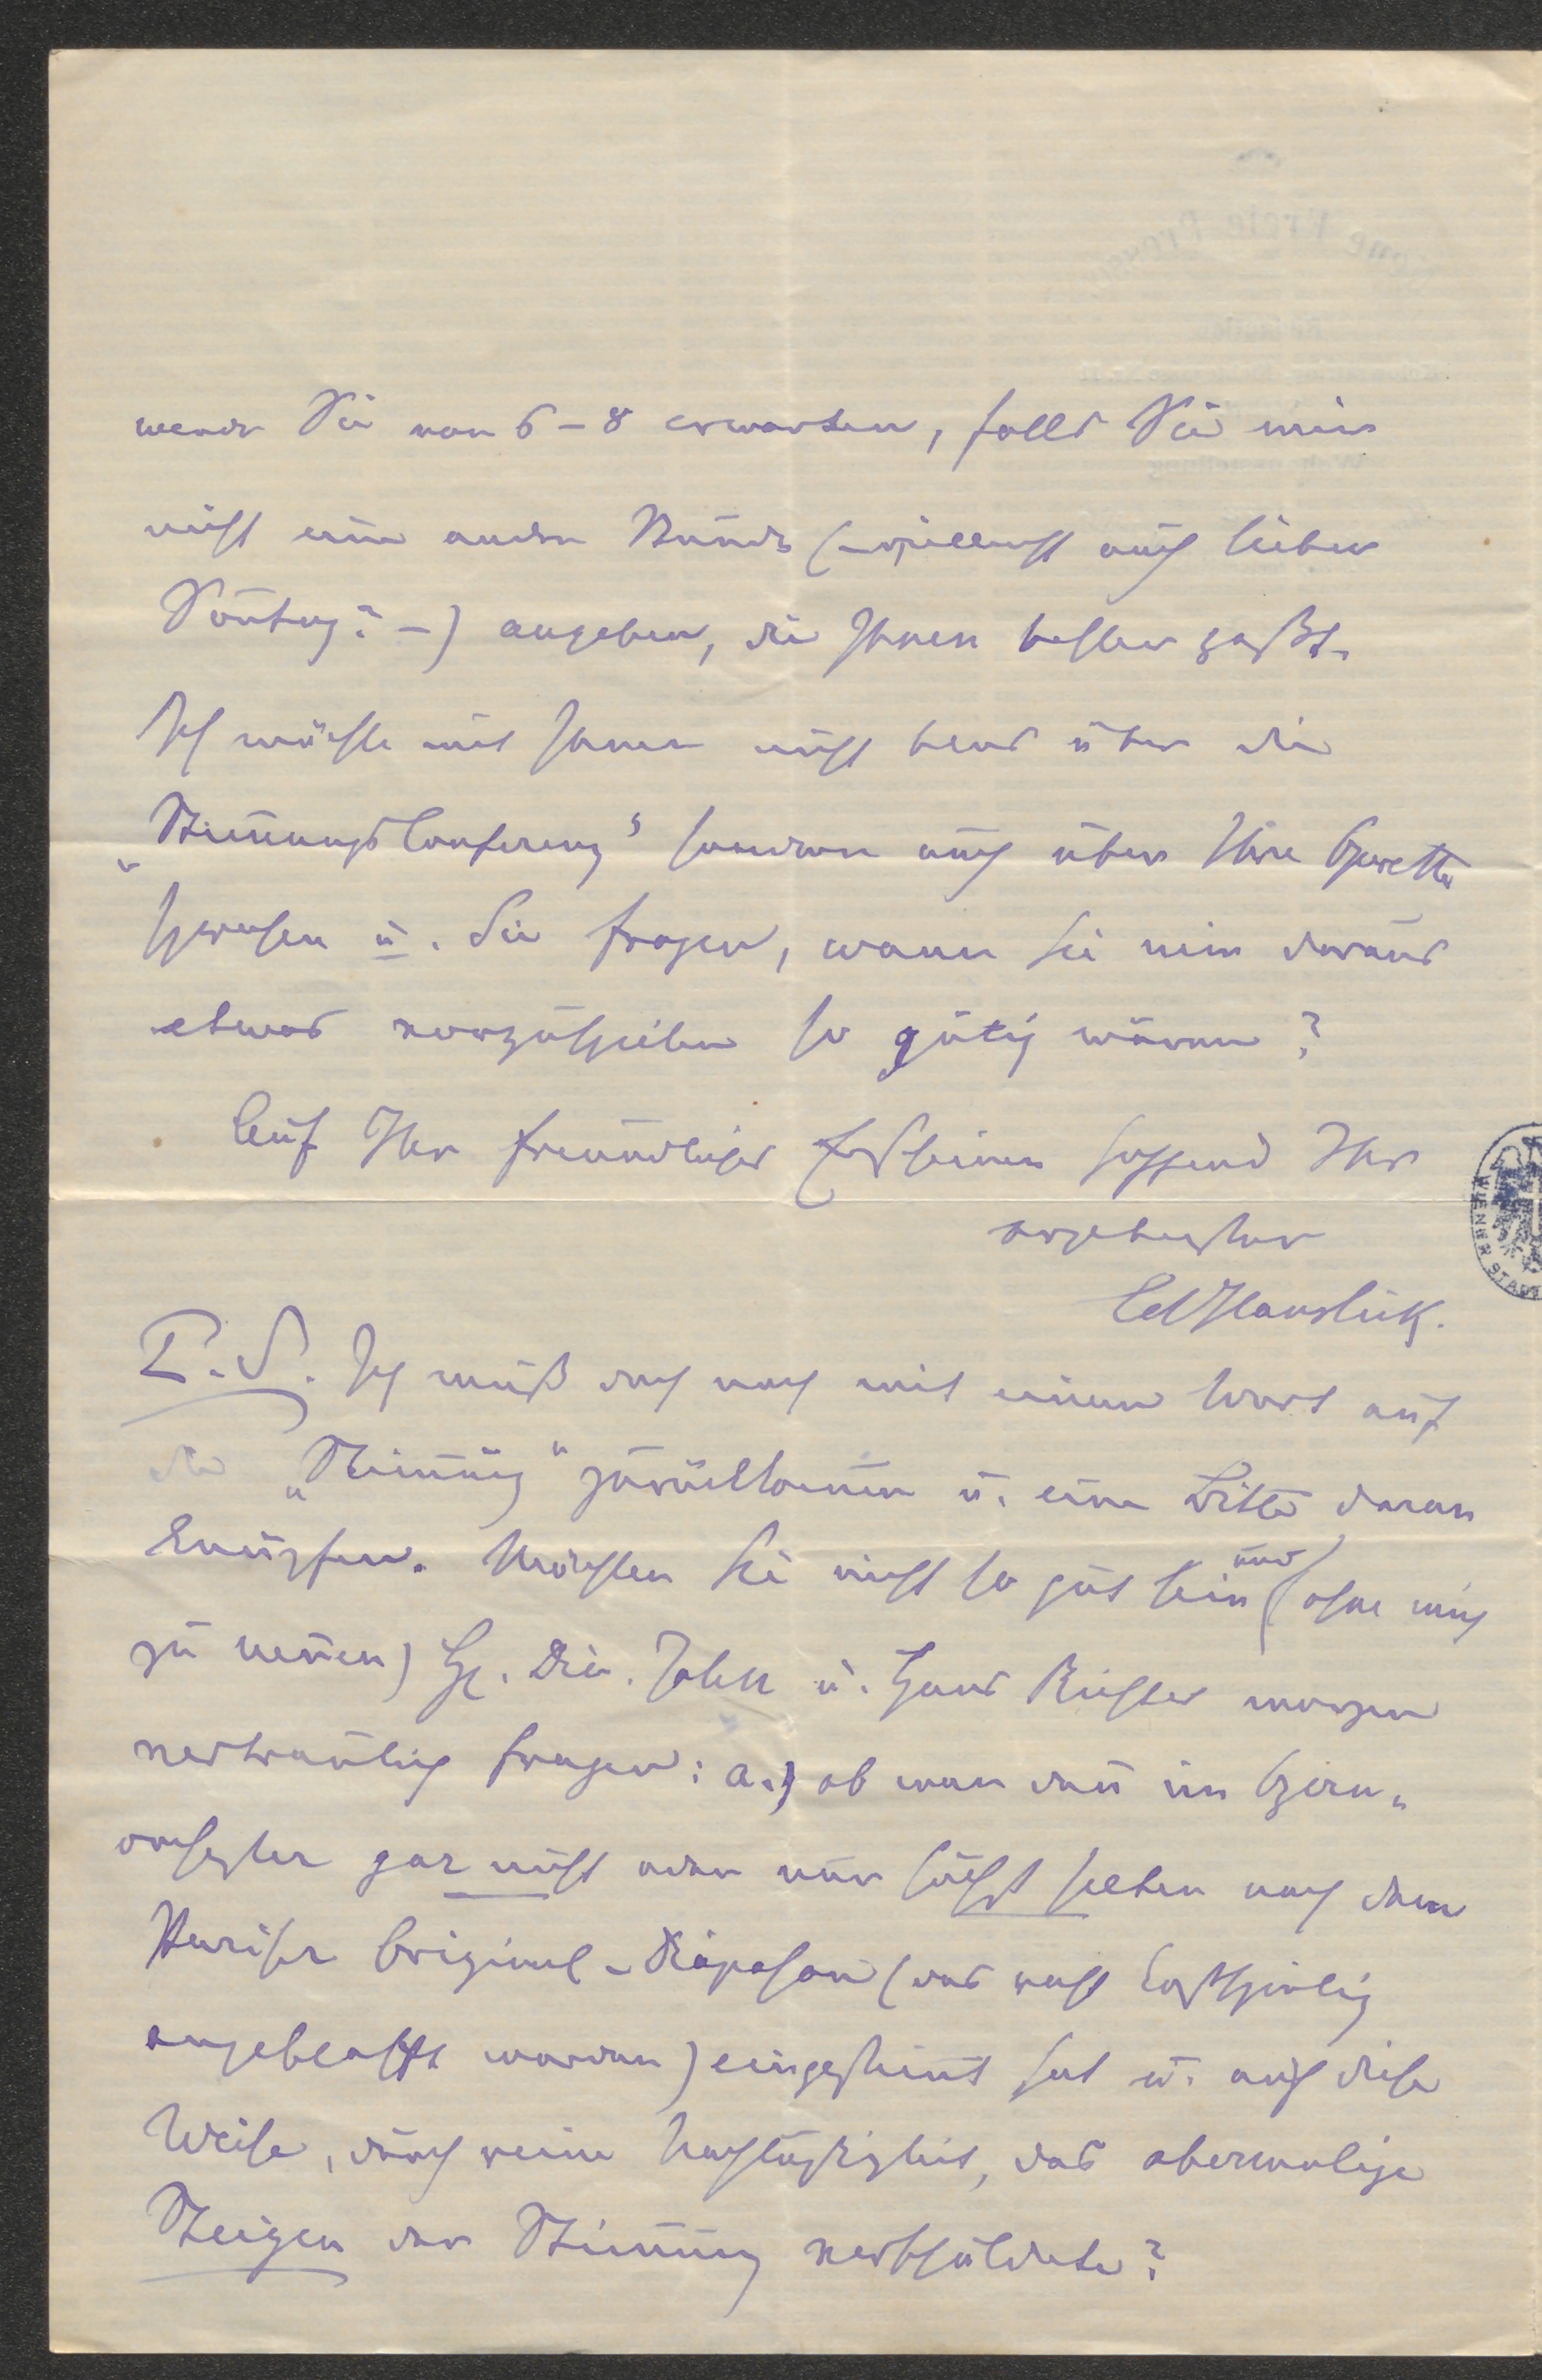 Neue Freie Presse
werde Sie von 6–8 erwarten, falls Sie mir
nicht eine andre Stunde (– vielleicht auch lieber
Soñtag? –) angeben, die Ihnen besser paßt.
Ich möchte mit Ihnen nicht blos über die
„Stim̃ungsConferenz“ sondern auch über Ihre Operette
sprechen u. Sie fragen, wann Sie mir daraus
etwas vorzuspielen so gütig wären?
Auf Ihr freundliches Erscheinen hoffend Ihr
ergebenster
EdHanslick.
P.S. Ich muß doch noch mit einem Wort auf
die „Stim̃ung“ zurückkom̃en u. eine Bitte daran
knüpfen. Möchten Sie nicht so gut sein und (ohne mich
zu neñen) H. Dir. Jahn u. Hans Richter morgen
vertraulich fragen: a.) ob man deñ im Opern-
orchester gar nicht oder nur höchst selten nach dem
Pariser Original-Diapason (das recht kostspielig
angeschafft worden) eingestim̃t hat u. auf diese
Weise, durch reine Nachlässigkeit, das abermalige
Steigen der Stim̃ung verschuldete?
WIENER STADT